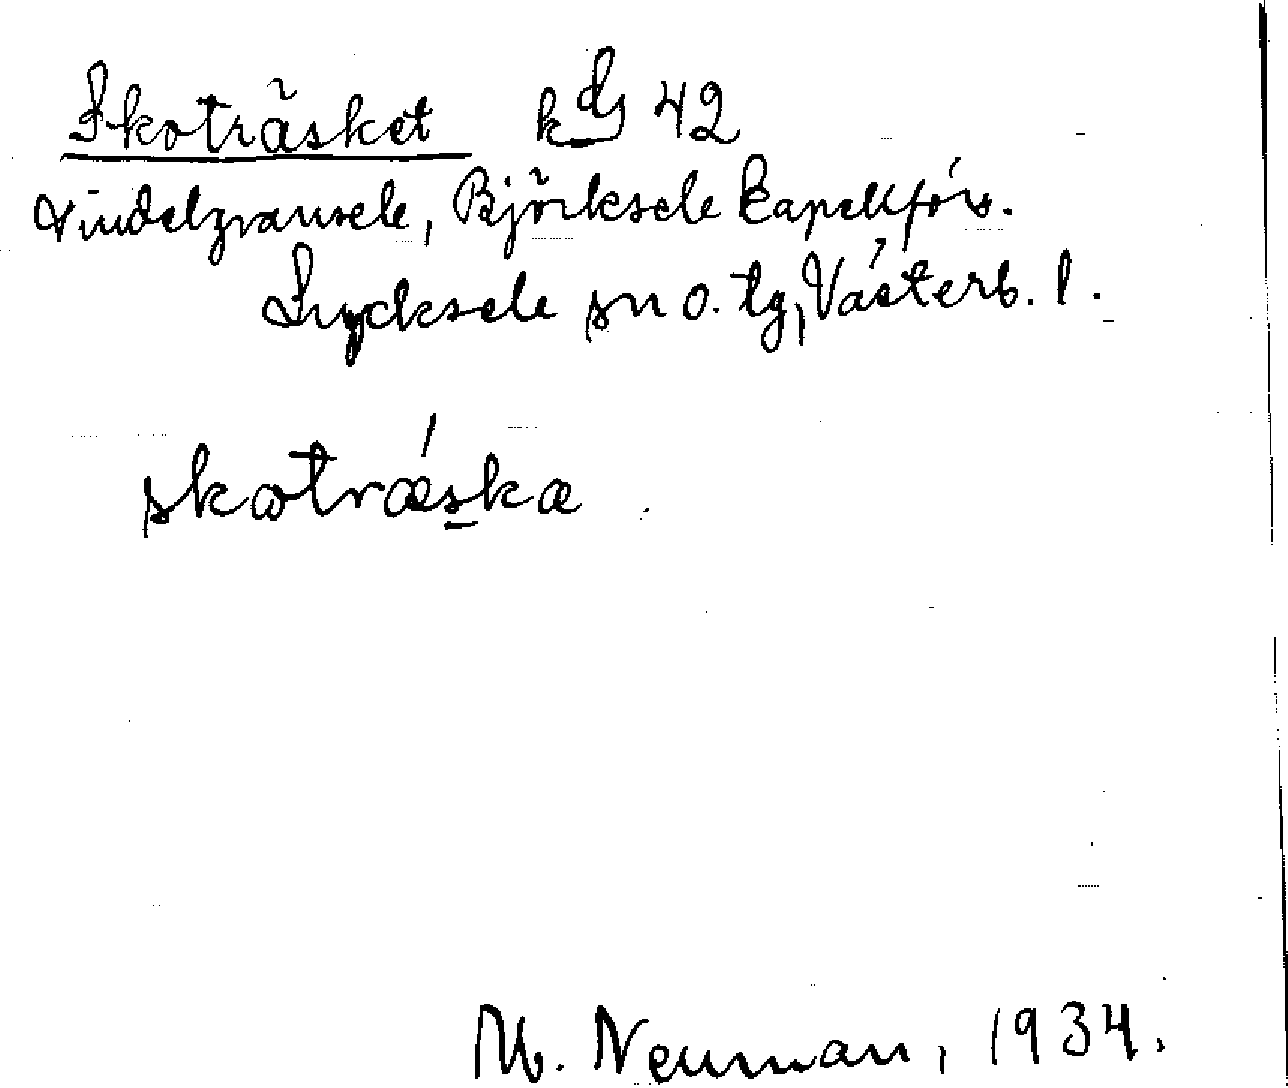 Skoträsket kds 42
Vindelgransele, Björksele kapellförs.
Lycksele sn o. tg, Västerb. l.
skωtrǽska
M. Neuman, 1934.